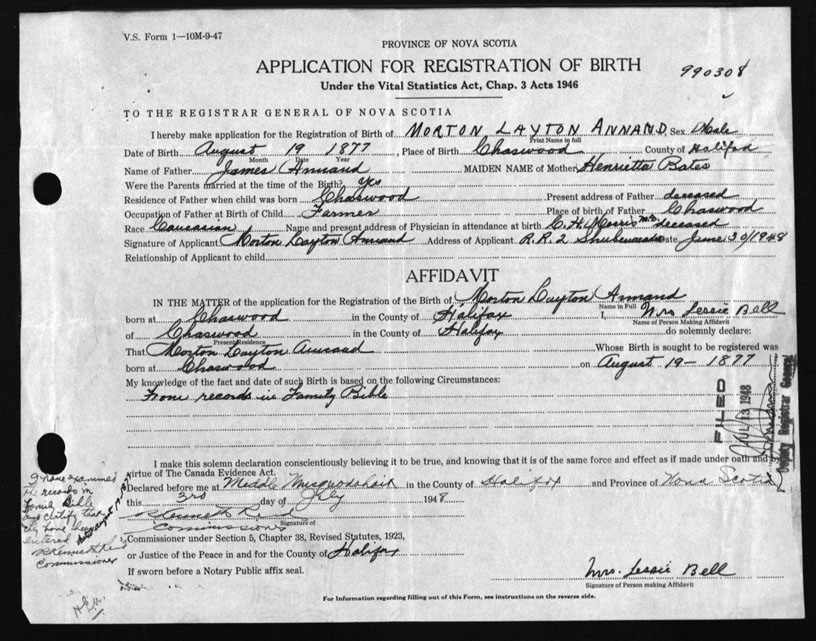 V.S. Form 1—10M-9-47
PROVINCE OF NOVA SCOTIA
APPLICATION FOR REGISTRATION OF BIRTH
990308
Under the Vital Statistics Act, Chap. 3 Acts 1946
TO THE REGISTRAR GENERAL OF NOVA SCOTIA
I hereby make application for the Registration of Birth of MORTON LAYTON ANNAND Sex Male
Print Name in full
Date of Birth August 19 1877, Place of Birth Chaswood County of Halifax
Month Date Year
Name of Father James Annand MAIDEN NAME of Mother Henrietta Bates
Were the Parents married at the time of the Birth? Yes
Residence of Father when child was born Chaswood Present address of Father deceased
Occupation of Father at Birth of Child Farmer Place of birth of Father Chaswood
Race Caucasian Name and present address of Physician in attendance at birth C. H. Morris M.D. deceased
Signature of Applicant Morton Layton Annand Address of Applicant R.R. 2 Shubenacadie Date June 30/1948
Relationship of Applicant to child
AFFIDAVIT
IN THE MATTER of the application for the Registration of the Birth of Morton Layton Annand
Name in Full
born at Chaswood in the County of Halifax I, Mrs Lessie Bell
Name of Person Making Affidavit
of Chaswood in the County of Halifax do solemnly declare:
Present Residence
That Morton Layton Annand Whose Birth is sought to be registered was
born at Chaswood on August 19 - 1877
My knowledge of the fact and date of such Birth is based on the following Circumstances:
From records in Family Bible
FILED
JUL 13 1948
Deputy Registrar General
I make this solemn declaration conscientiously believing it to be true, and knowing that it is of the same force and effect as if made under oath and by
virtue of The Canada Evidence Act.
Declared before me at Middle Musquodoboit in the County of Halifax and Province of Nova Scotia
this 3rd day of July 1948
Kenneth Reid
Commissioner
Signature of
Commissioner under Section 5, Chapter 38, Revised Statutes, 1923,
or Justice of the Peace in and for the County of Halifax
If sworn before a Notary Public affix seal.
Mrs. Lessie Bell
Signature of Person making Affidavit
For Information regarding filling out of this Form, see instructions on the reverse side.
I have examined
the records in
Family Bible
and certify that
entered
Kenneth Reid
Commissioner